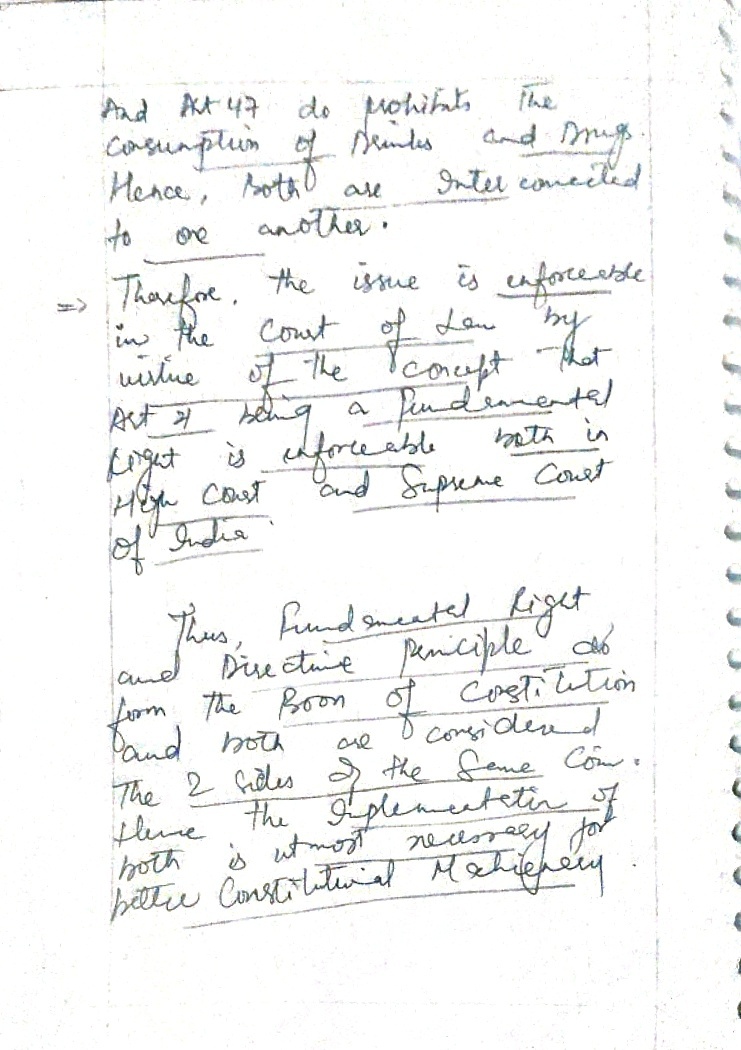 And Art 47 do prohibits the
consumption of Drinks and Drugs.
Hence, both are Inter connected
to one another.
=> Therefore, the issue is enforceable
in the Court of Law by
virtue of the concept that
Art 21 being a Fundamental
Right is enforceable both in
High Court and Supreme Court
of India.
Thus, Fundamental Right
and Directive Principle do
form the Boon of Constitution
and both are considered
The 2 sides of the Same Coin.
Hence the Implementation of
both is utmost necessary for
better Constitutional Machienery.